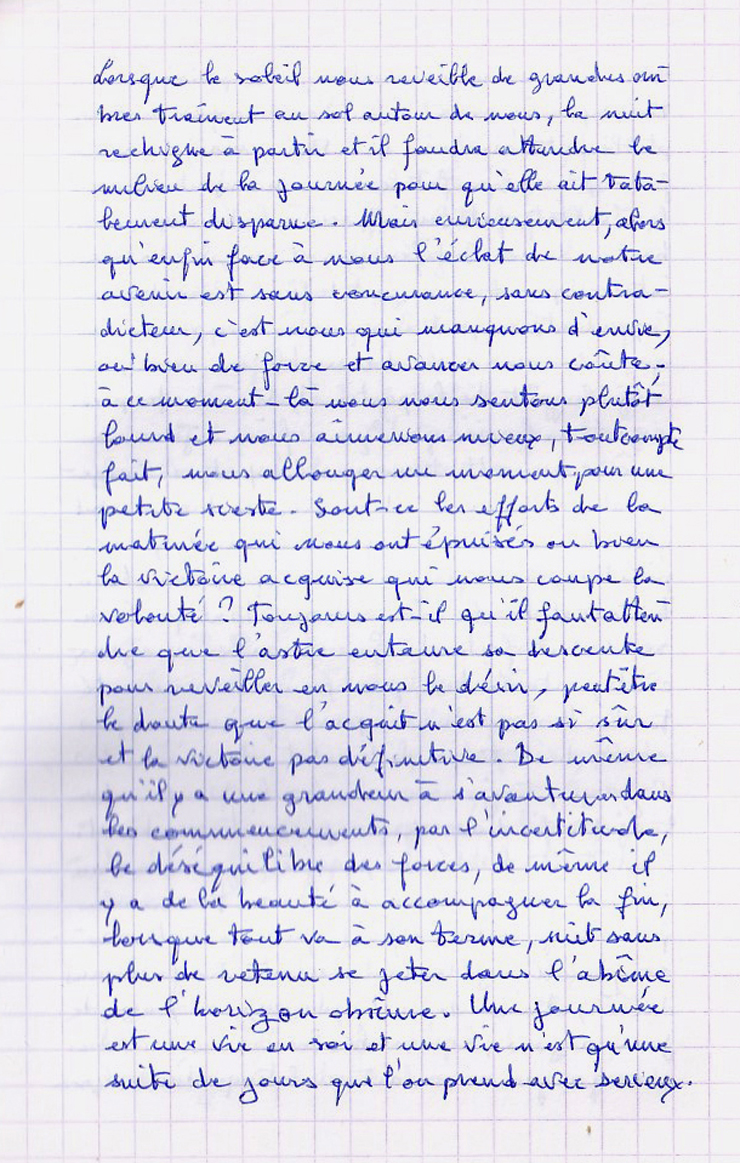 Lorsque le soleil nous reveille de grandes om
bres traînent au sol autour de nous, la nuit
rechigne à partir et il faudra attendre le
milieu de la journée pour qu'elle ait tota-
lement disparue. Mais curieusement, alors
qu'enfin face à nous l'éclat de notre
avenir est sans concurance, sans contra-
dicteur, c'est nous qui manquons d'envie,
ou bien de force et avancer nous coûte ;
à ce moment-là nous nous sentons plutôt
lourd et nous aimerions mieux, tout compte
fait, nous allonger un moment pour une
petite sieste. Sont-ce les efforts de la
matinée qui nous ont épuisés ou bien
la victoire acquise qui nous coupe la
volonté ? Toujours est-il qu'il faut atten
dre que l'astre entame sa descente
pour reveiller en nous le désir, peut être
le doute que l'acquit n'est pas si sûr
et la victoire pas définitive. De même
qu'il y a une grandeur à s'aventurer dans
les commencements, par l'incertitude,
le déséquilibre des forces, de même il
y a de la beauté à accompagner la fin,
lorsque tout va à son terme, suit sans
plus de retenu se jeter dans l'abîme
de l'horizon obscure. Une journée
est une vie en soi et une vie n'est qu'une
suite de jours que l'on prend avec serieux.